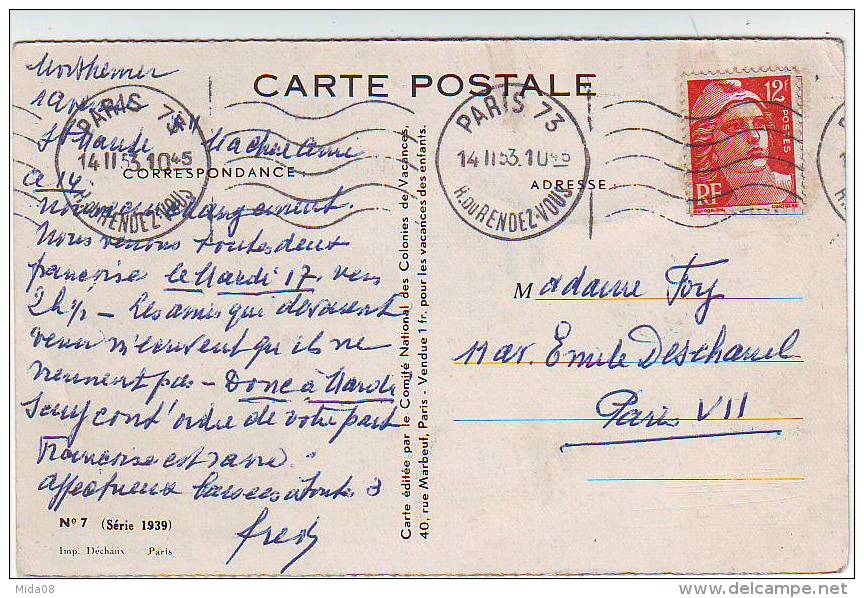 CARTE POSTALE
CORRESPONDANCE :
ADRESSE :
PARIS 73
14 II 53. 10 45
R. DU RENDEZ-VOUS
PARIS 73
14 II 53. 10 45
R. DU RENDEZ-VOUS
12F
POSTES
RF
St Mandé
Ma chère Amie
Nouveau changement.
Nous venons toutes deux
françoise le Mardi 17 vers
2h ½ – Les amis qui devaient
venir m'écrivent qu'ils ne
viennent pas – Donc à Mardi
sauf cont'ordre de votre part
Françoise est ravie.
affectueux baisers à toutes 3
fred
Carte éditée par le Comité National des Colonies de Vacances,
40, rue Marbeuf, Paris - Vendue 1 fr. pour les vacances des enfants.
Madame Foy
11 av. Emile Deschanel
Paris VII
N° 7 (Série 1939)
Imp. Déchaux Paris
Mida08
delcampe.net